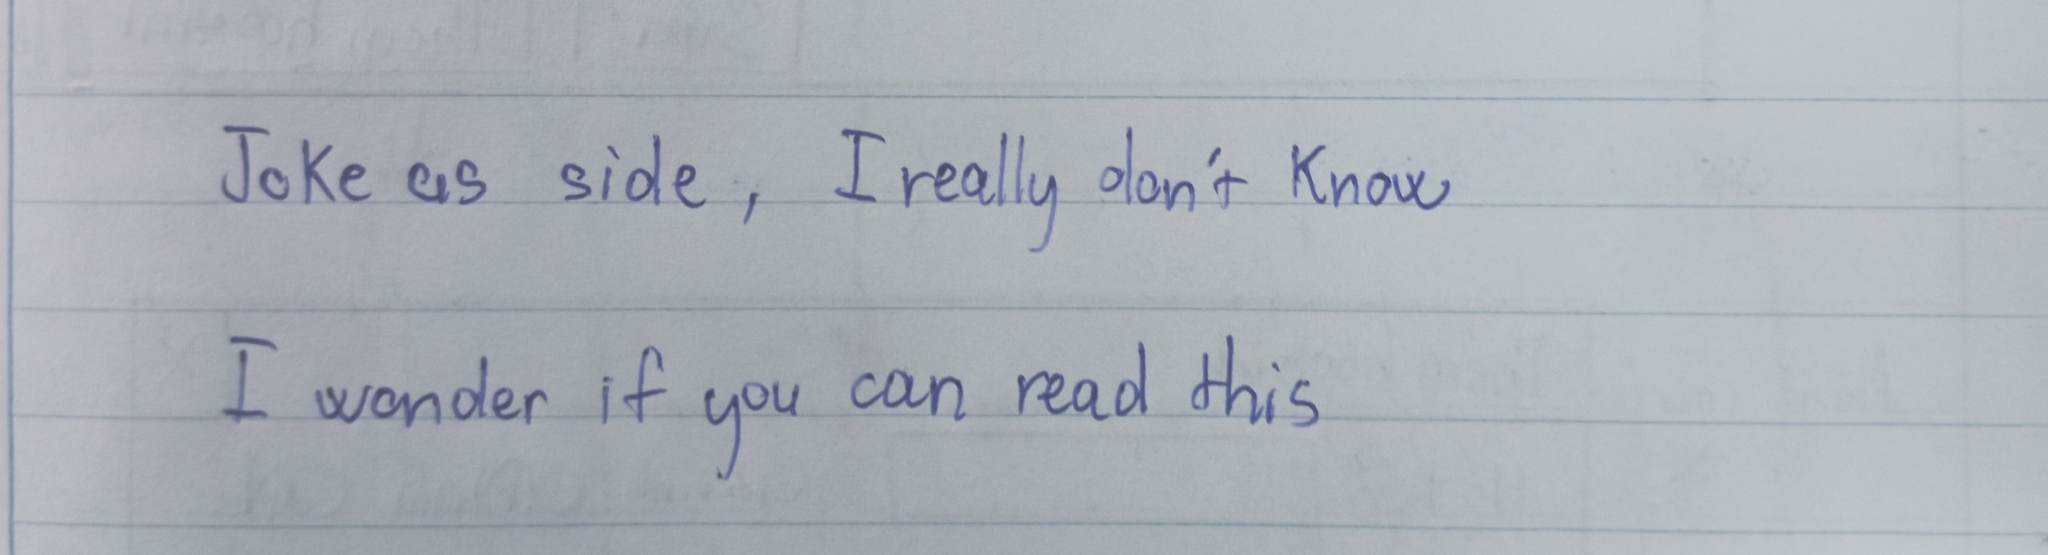 Joke as side, I really don't know
I wonder if you can read this